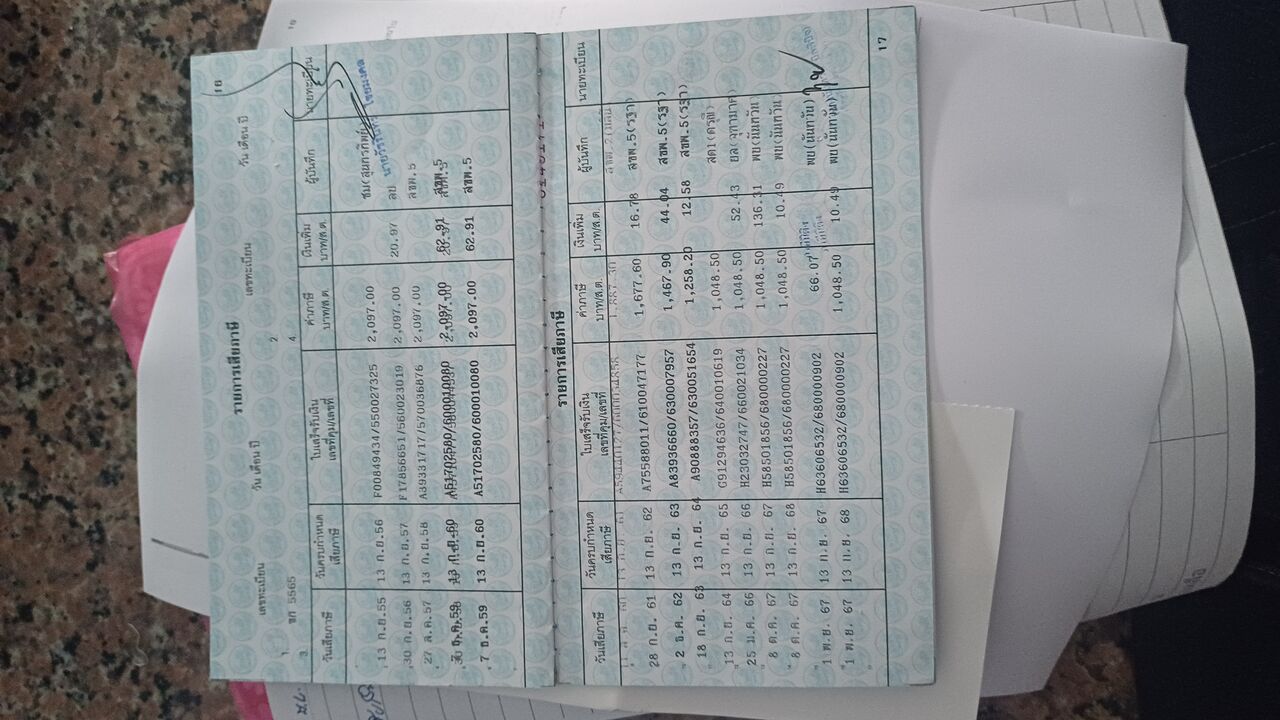 16
รายการเสียภาษี
เลขทะเบียน วัน เดือน ปี เลขทะเบียน วัน เดือน ปี
1 ขก 5565 2
3 4
วันเสียภาษี วันครบกำหนดเสียภาษี ใบเสร็จรับเงิน เลขที่คุม/เลขที่ ค่าภาษี บาท/ส.ต. เงินเพิ่ม บาท/ส.ต. ผู้บันทึก นายทะเบียน
13 ก.ย.55 13 ก.ย.56 F00849434/550027325 2,097.00
30 ก.ย.56 13 ก.ย.57 F17856651/560023019 2,097.00 20.97 ลย
27 ส.ค.57 13 ก.ย.58 A39331717/570036876 2,097.00 สขพ.5
13 ก.ย.60 A51702580/600010080 2,097.00 62.91 สขพ.5
7 ธ.ค.59 13 ก.ย.60 A51702580/600010080 2,097.00 62.91 สขพ.5
รายการเสียภาษี
วันเสียภาษี วันครบกำหนดเสียภาษี ใบเสร็จรับเงิน เลขที่คุม/เลขที่ ค่าภาษี บาท/ส.ต. เงินเพิ่ม บาท/ส.ต. ผู้บันทึก นายทะเบียน
28 ก.ย. 61 13 ก.ย. 62 A75588011/610047177 1,677.60 16.78 สขพ.5(วฐา)
2 ธ.ค. 62 13 ก.ย. 63 A83936660/630007957 1,467.90 44.04 สขพ.5(วฐา)
18 ก.ย. 63 13 ก.ย. 64 A90888357/630051654 1,258.20 12.58 สขพ.5(วฐา)
13 ก.ย. 64 13 ก.ย. 65 G91294636/640010619 1,048.50 สด1(ดรุณี)
25 ม.ค. 66 13 ก.ย. 66 H23032747/660021034 1,048.50 52.43 ยล(จุฑามาศ)
8 ต.ค. 67 13 ก.ย. 67 H58501856/6800000227 1,048.50 136.31 พย(นันทวัน)
8 ต.ค. 67 13 ก.ย. 68 H58501856/6800000227 1,048.50 10.49 พย(นันทวัน)
1 พ.ย. 67 13 ก.ย. 67 H63606532/6800000902 66.07 พย(นันทวัน)
1 พ.ย. 67 13 ก.ย. 68 H63606532/6800000902 1,048.50 10.49 พย(นันทวัน)
17